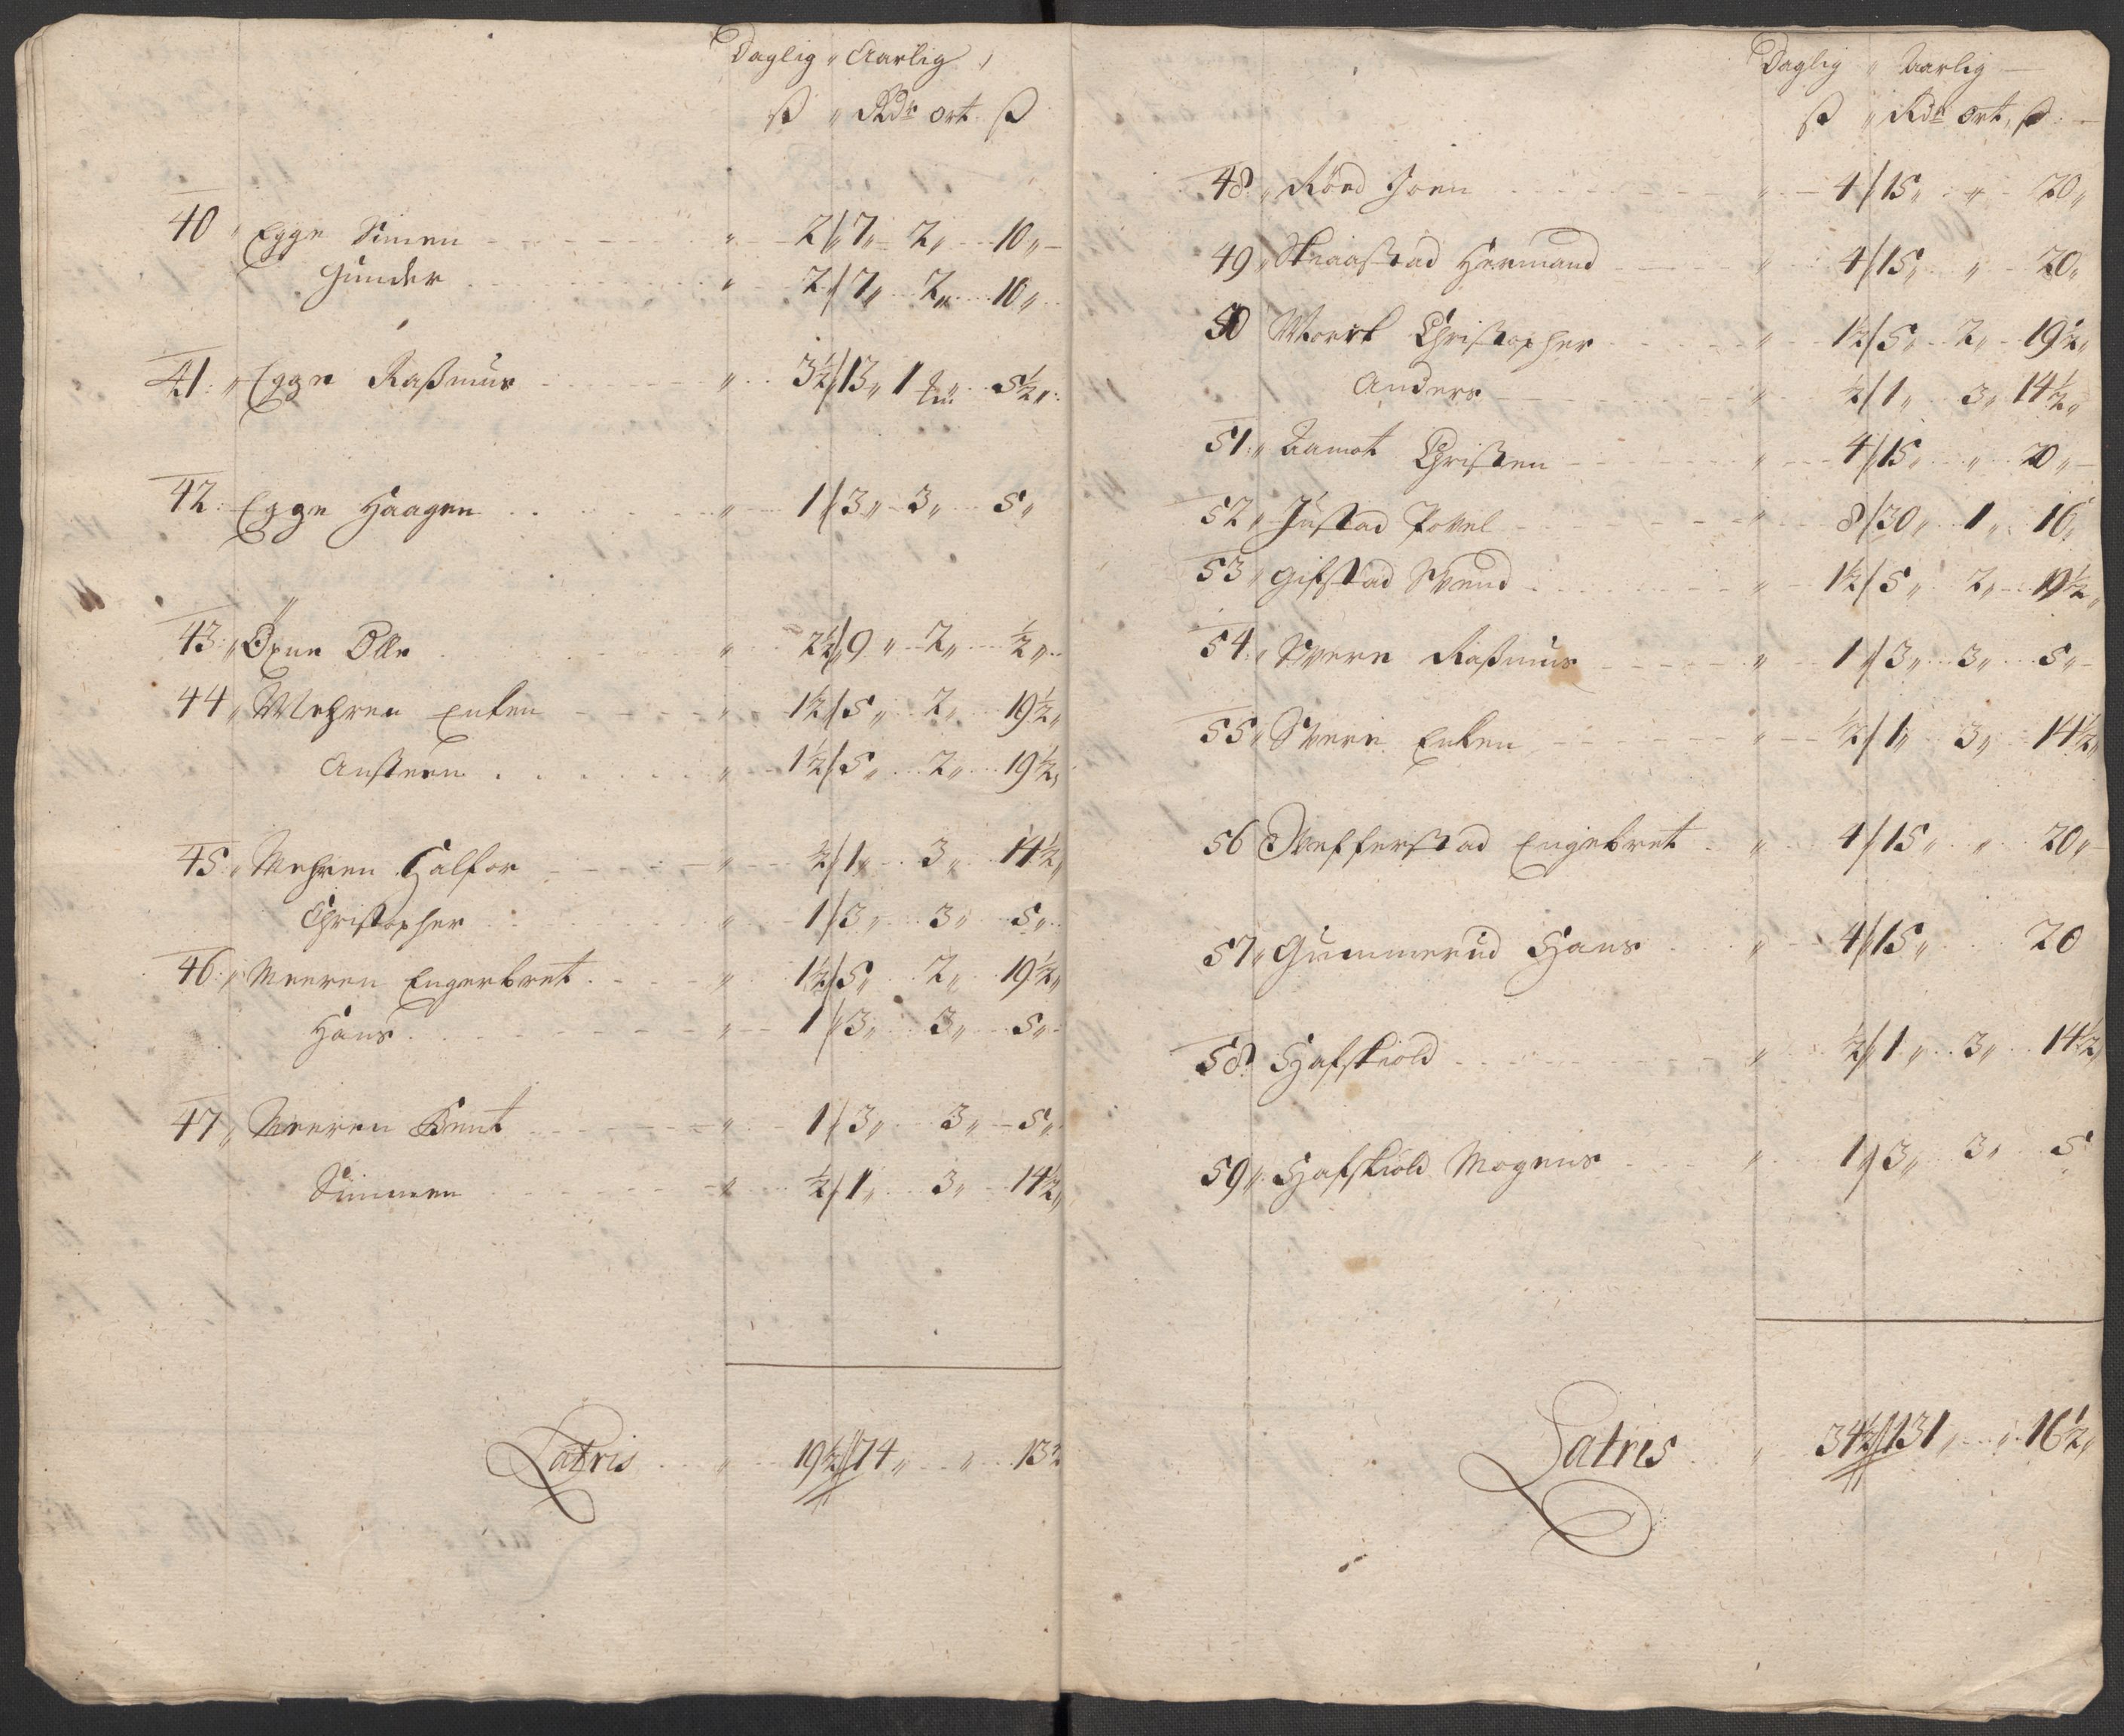 Daglig „ Aarlig
ß „ Rdr ort ß
40 „ Egge Simen „ 2 // 7 „ 2 „ 10 „
Gunder „ 2 // 7 „ 2 „ 10 „
41 „ Egge Raßmus „ 3½ // 13 „ 1 „ 5½ „
42 Egge Haagen „ 1 // 3 „ 3 „ 5 „
43 „ Öxne Olle „ 2½ // 9 „ 2 „ ½ „
44 „ Mehren Enken „ 1½ // 5 „ 2 „ 19½ „
Austeen „ 1½ // 5 „ 2 „ 19½ „
45 „ Mehren Halfor „ ½ // 1 „ 3 „ 14½ „
Christopher „ 1 // 3 „ 3 „ 5 „
46 „ Meeren Engerbret „ 1½ // 5 „ 2 „ 19½ „
Hans „ 1 // 3 „ 3 „ 5 „
47 „ Meeren Bent „ 1 // 3 „ 3 „ 5 „
Simmen „ ½ // 1 „ 3 „ 14½ „
Latris „ 19½ // 74 „ „ 13½
Daglig „ Aarlig
ß „ Rdr ort „ ß
48 „ Röed Joen „ 4 // 15 „ „ 20 „
49 „ Skaastad Hermand „ 4 // 15 „ „ 20 „
50 Mörk Christopher „ 1½ // 5 „ 2 „ 19½ „
Anders „ ½ // 1 „ 3 „ 14½ „
51 „ Aamot Christen „ 4 // 15 „ „ 20 „
52 „ Justad Povel „ 8 // 30 „ 1 „ 16 „
53 „ Gifstad Svend „ 1½ // 5 „ 2 „ 19½ „
54 „ Svere Raßmus „ 1 // 3 „ 3 „ 5 „
55 „ Svere Enken „ ½ // 1 „ 3 „ 14½ „
56 Wefferstad Engebret „ 4 // 15 „ „ 20 „
57 „ Gummerud Hans „ 4 // 15 „ 20
58 Hafskiold „ ½ // 1 „ 3 „ 14½ „
59 „ Hafskiold Mogens „ 1 // 3 „ 3 „ 5
Latris „ 34½ // 131 „ „ 16½ „